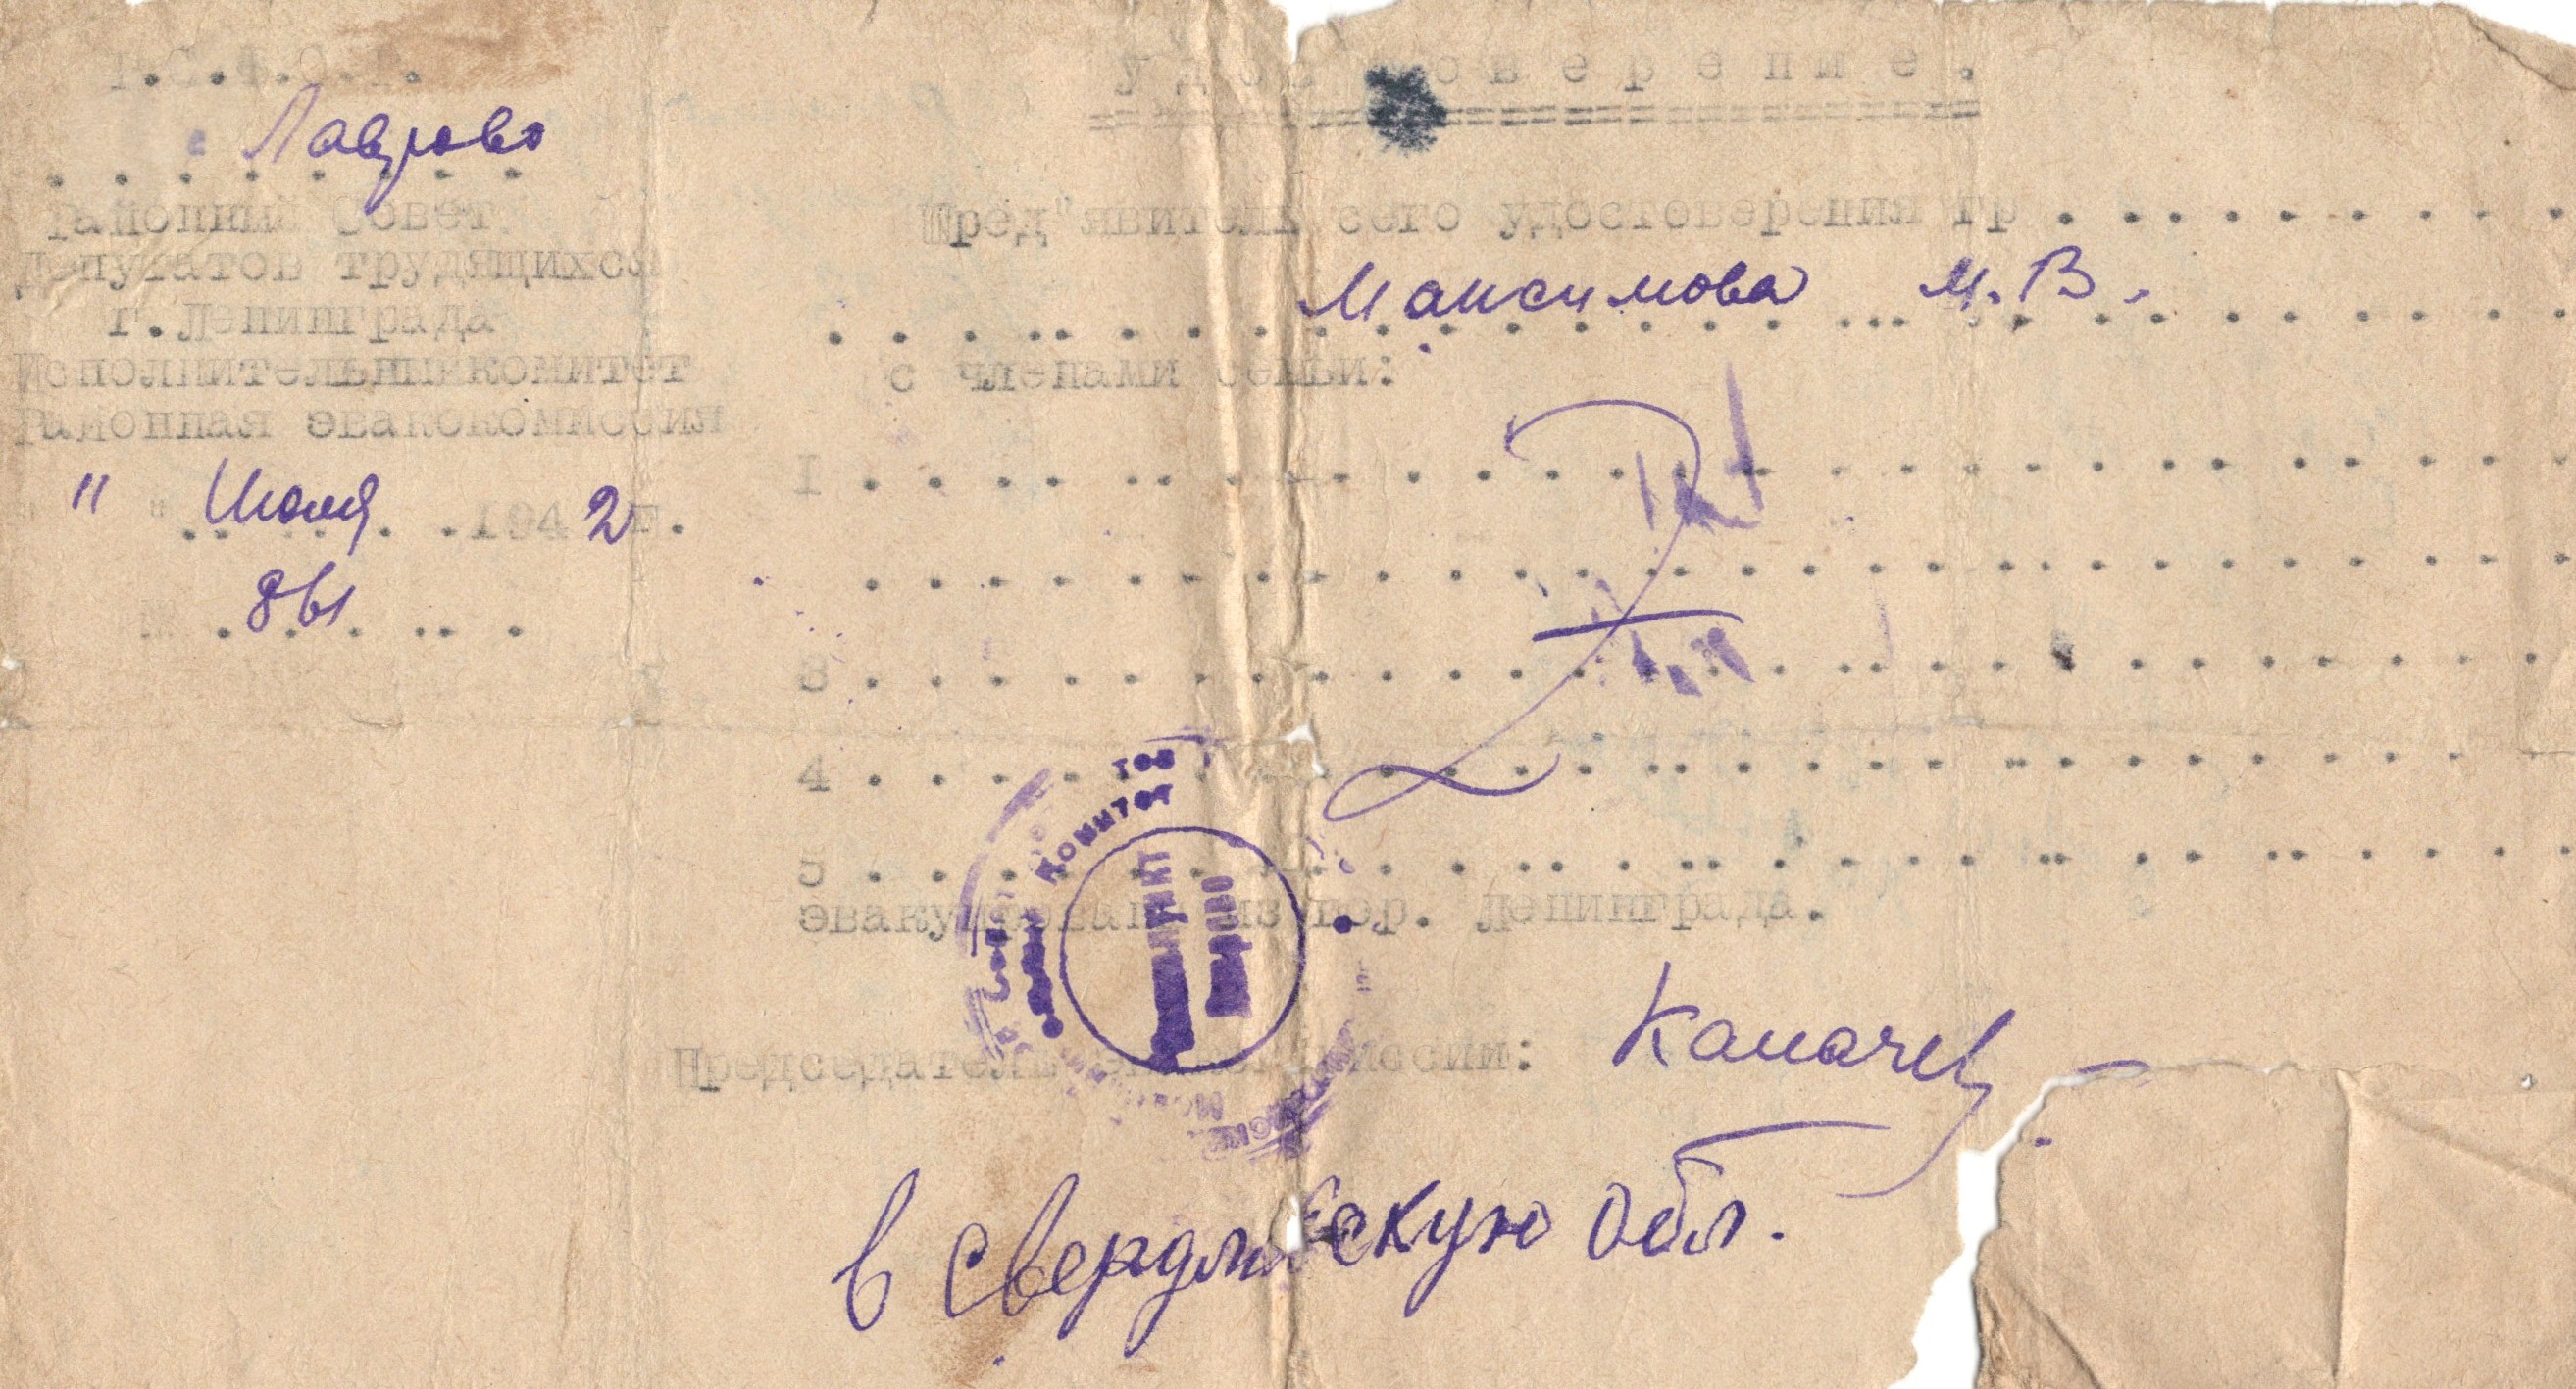 Р.С.Ф.С.Р.
Лаврово
Районный Совет
Депутатов трудящихся
г.Ленинграда
Исполнительный комитет
Районная эвакокомиссия
" " Июля 1942 г.
№ 861
Удостоверение.
Пред"явитель сего удостоверения гр
Максимова М.В.
с членами семьи:
1
3
4
5
эвакуирован из гор. Ленинграда.
Председатель эвакокомиссии:
в Свердловскую обл.